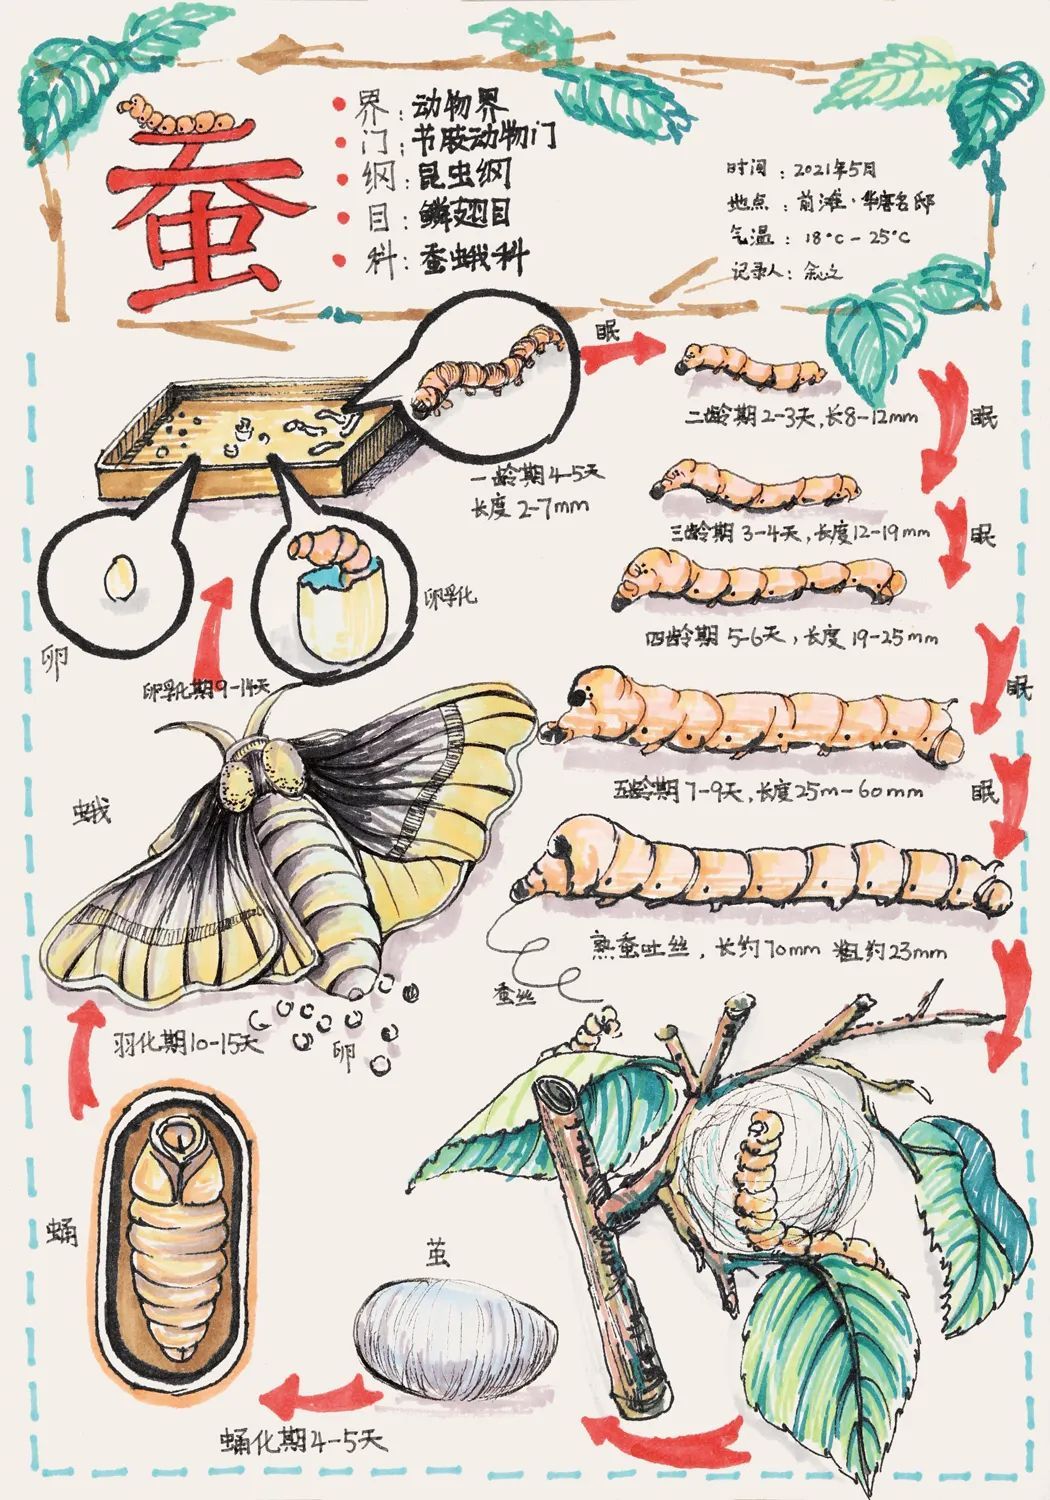 蚕
界：动物界
门：节肢动物门
纲：昆虫纲
目：鳞翅目
科：蚕蛾科
时间：2021年5月
地点：前滩·华唐名邸
气温：18°C-25°C
记录人：余心之
眠
二龄期2-3天,长8-12mm
眠
一龄期4-5天
长度2-7mm
三龄期 3-4天,长度12-19mm
眠
卵
卵孵化
四龄期 5-6天,长度 19-25mm
卵孵化期9-14天
眠
五龄期7-9天,长度25m-60mm
眠
蛾
熟蚕吐丝,长约70mm 粗约23mm
蚕丝
羽化期10-15天
卵
蛹
茧
蛹化期4-5天